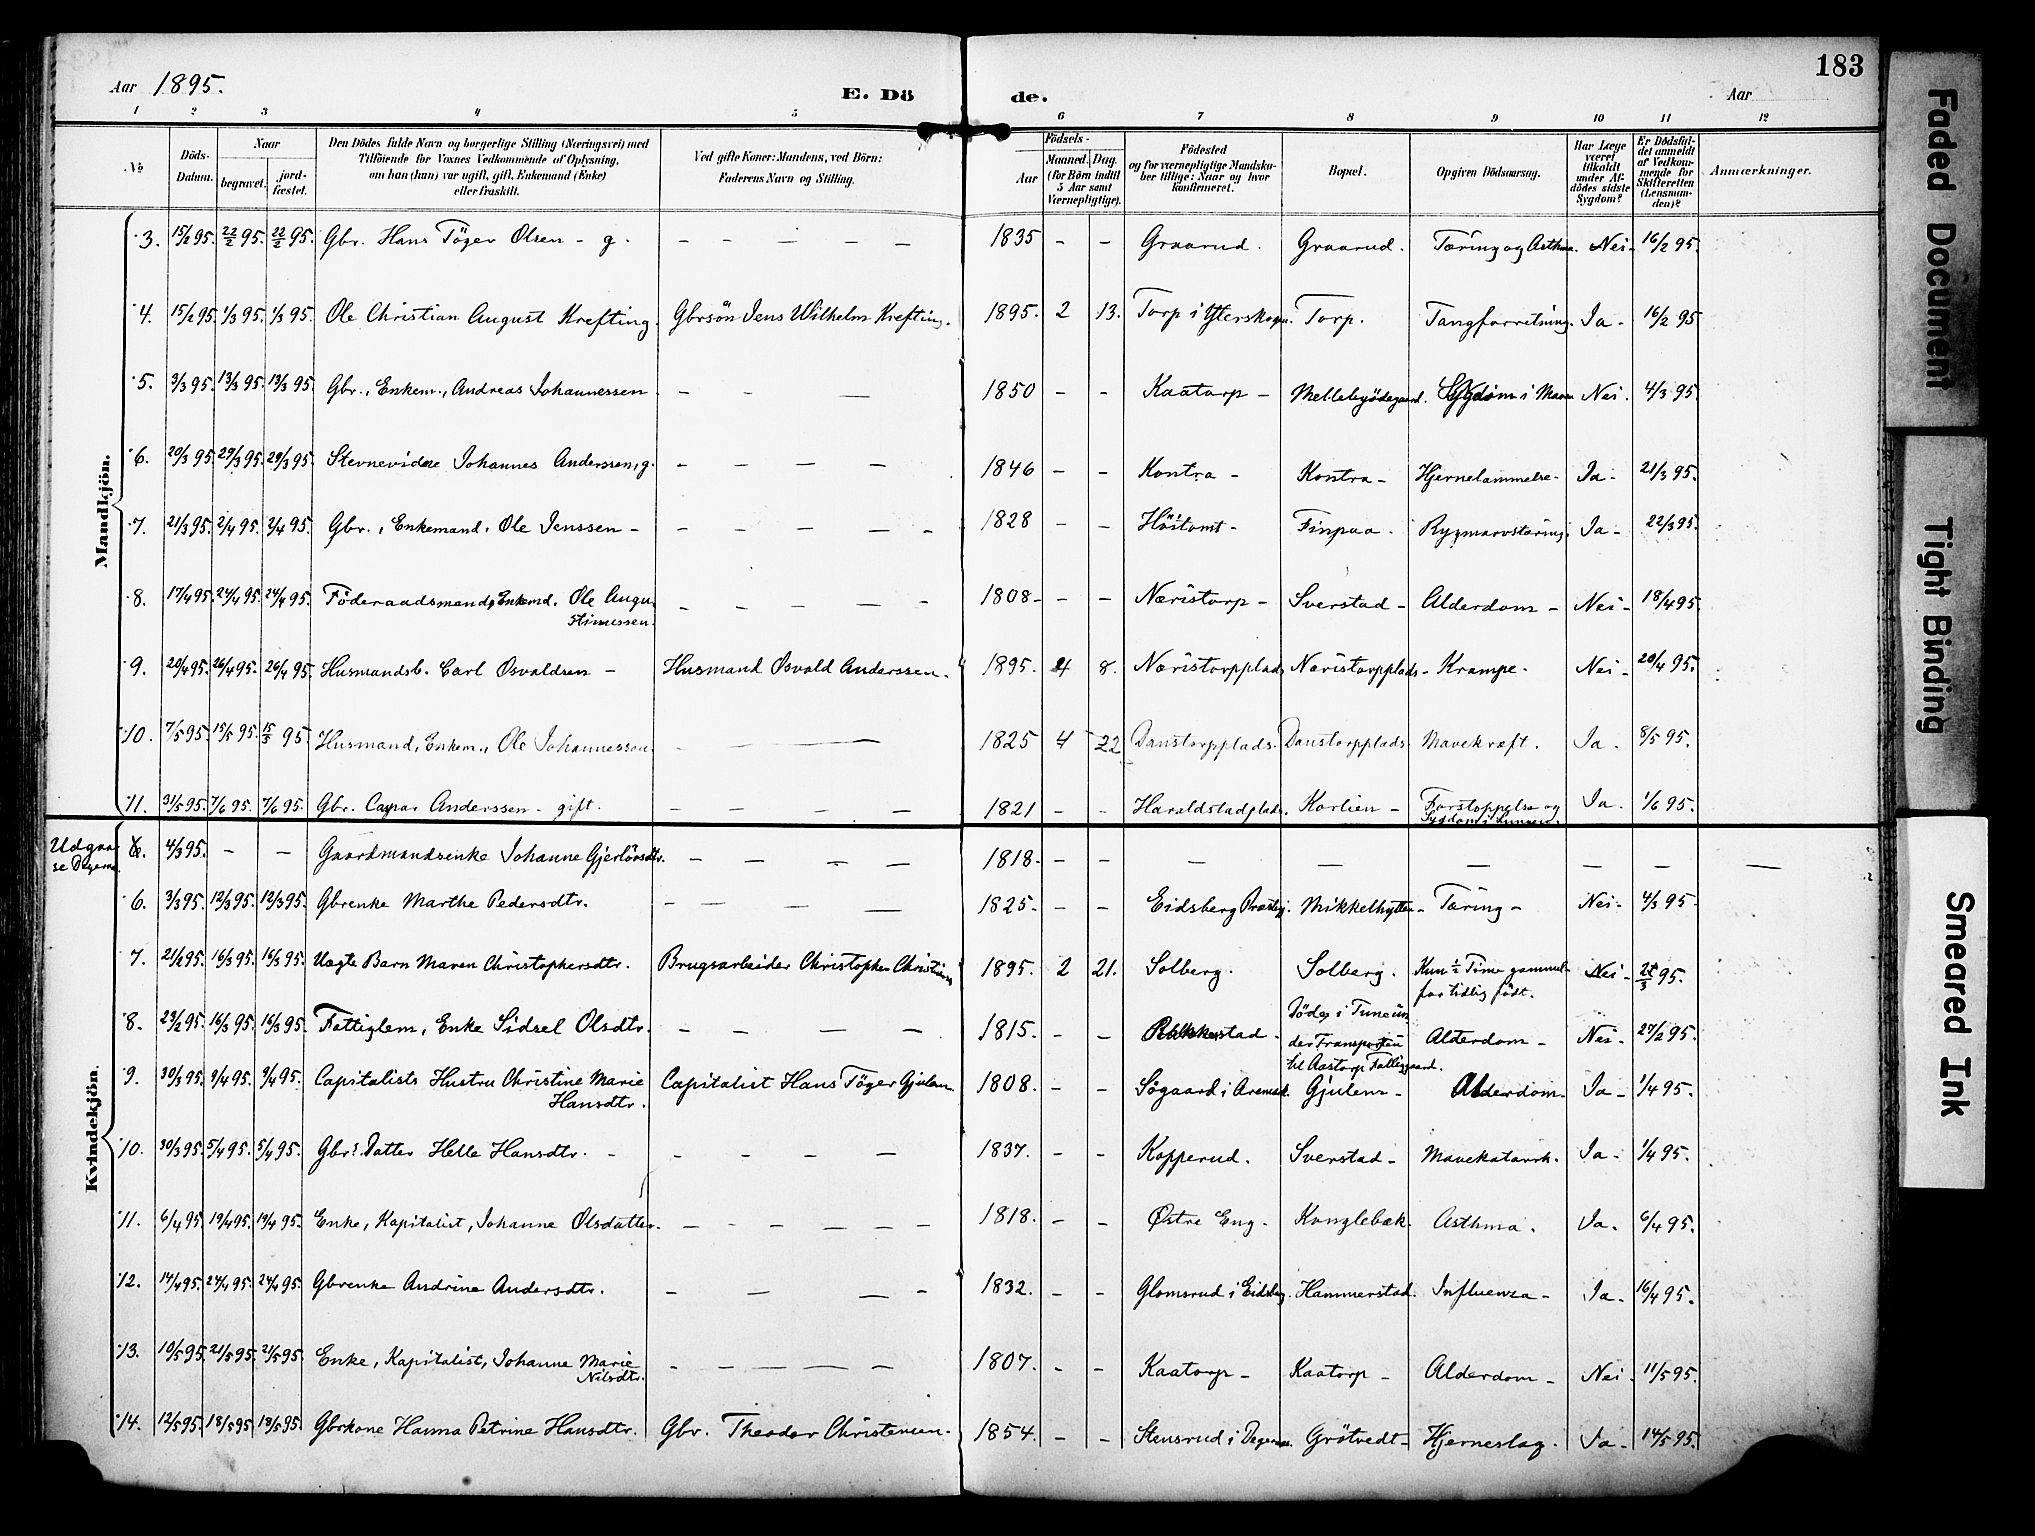 183
Aar 1895.
E. Dö de.
Aar
1 2 3 4 5 6 7 8 9 10 11 12
No
Döds-Datum.
Naar
begravet.
jord-fæstet.
Den Dödes fulde Navn og borgerlige Stilling (Næringsvei) med
Tilföiende for Voxnes Vedkommende af Oplysning,
om han (hun) var ugift, gift, Enkemand (Enke)
eller fraskilt.
Ved gifte Koner: Mandens, ved Börn:
Faderens Navn og Stilling.
Födsels-
Aar
Maaned. Dag.
(for Börn indtil
5 Aar samt
Værnepligtige).
Födested
og for værnepligtige Mandska-
ber tillige: Naar og hvor
konfirmeret.
Bopæl.
Opgiven Dödsaarsag.
Har Læge
været
tilkaldt
under Af-
dödes sidste
Sygdom?
Er Dödsfal-
det anmeldt
af Vedkom-
mende for
Skifteretten
(Lensman-
den)?
Anmærkninger.
Mandkjön.
3. 15/2 95. 22/2 95. 22/2 95. Gbr. Hans Töger Olsen - g. - - - - - 1835 - - Graarud. Graarud. Tæring og Asthma. Nei - 16/2 95.
4. 15/2 95. 1/3 95. 1/3 95. Ole Christian August Krefting. Gbrsön Jens Wilhelm Krefting. 1895. 2 13. Torp i Yterskogn. Torp. Tangforretning. Ja - 16/2 95
5. 3/3 95. 13/3 95. 13/3 95. Gbr., Enkem., Andreas Johannessen. - - - 1850 - - Kaatorp - Mellebyödegaard. Sygdom i Maven Nei. 4/3 95.
6. 20/3 95. 29/3 95. 29/3 95. Stevnevidne Johannes Anderssen, g. - - - - 1846 - - Kontra - Kontra - Hjernelammelse - Ja - 21/3 95.
7. 21/3 95. 2/4 95. 2/4 95. Gbr., Enkemand. Ole Jenssen - - - - - 1828 - - Höitomt - Finpaa. Rygmarvstæring. Ja - 22/3 95.
8. 17/4 95. 24/4 95. 24/4 95. Föderaadsmand, Enkemd. Ole Augu-
stinussen. - - - - - 1808 - - - Næristorp - Sverstad - Alderdom - Nei - 18/4 95.
9. 20/4 95. 26/4 95. 26/4 95. Husmandsb. Carl Osvaldsen - Husmand Osvald Anderssen. 1895. 4 8. Næristorpplads Næristorpplads - Krampe. Nei - 20/4 95.
10. 7/5 95. 15/5 95. 15/5 95 Husmand, Enkem., Ole Johannessen - - - 1825 4 22 Danstorpplads. Danstorpplads. Mavekræft. Ja. 8/5 95.
11. 31/5 95. 7/6 95. 7/6 95. Gbr. Caspar Anderssen - gift. - - - - - 1821 - - Haraldstadplads. Korlien - Forstoppelse og
Sygdom i Lungen. Ja. 1/6 95.
Kvindekjön.
Udgaa-
se Degernes 4/3 95. - - Gaardmandsenke Johanne Gjerlövsdtr. - - - - - 1818 - - - - - - - - -
6. 3/3 95. 12/3 95. 12/3 95. Gbrenke Marthe Pedersdtr. - - - - 1825. - - Eidsberg Præstegj. Mikkelhytten - Tæring - Nei - 4/3 95.
7. 21/2 95. 16/3 95. 16/3 95. Uægte Barn Maren Christophersdtr. Brugsarbeider Christopher Christians 1895. 2 21. Solberg. Solberg. Kun 1/2 Time gammel
for tidlig födt. Nei - 95.
8. 23/2 95. 16/3 95. 16/3 95. Fattiglem, Enke Sidsel Olsdtr. - - - - 1815. - - Rakkestad - Döde i Tune un-
der Transporten
til Aastorp Fattiggaard. Alderdom - Nei - 27/2 95.
9. 30/3 95. 9/4 95. 9/4 95. Capitalists Hustru Christine Marie
Hansdtr. Capitalist Hans Töger Gjulem 1808. - - Sögaard i Aremark. Gjulem - Alderdom. Ja - 1/4 95.
10. 30/3 95. 5/4 95. 5/4 95. Gbrs. Datter Helle Hansdtr. - - - - - 1837. - - Kopperud. Sverstad - Mavekatarrh. Ja - 1/4 95.
11. 6/4 95. 19/4 95. 19/4 95. Enke, Kapitalist, Johanne Olsdatter. - - - - - - 1818. - - Østre Eng - Konglebæk. Asthma. Ja. 6/4 95.
12. 14/4 95. 24/4 95. 24/4 95. Gbrenke Andrine Andersdtr. - - - - 1832. - - Glomsrud i Eidsberg. Hammerstad. Influensa - Ja - 16/4 95.
13. 10/5 95. 21/5 95. 21/5 95. Enke, Kapitalist, Johanne Marie
Nilsdtr. - - - - - 1807. - - Kaatorp - Kaatorp - Alderdom - Nei - 11/5 95.
14. 12/5 95. 18/5 95. 18/5 95. Gbrkone Hanna Petrine Hansdtr. Gbr. Theodor Christensen. 1854. - - Stensrud i Degernes. Grötvedt - Hjerneslag. Ja - 14/5 95.
Faded Document
Tight Binding
Smeared Ink